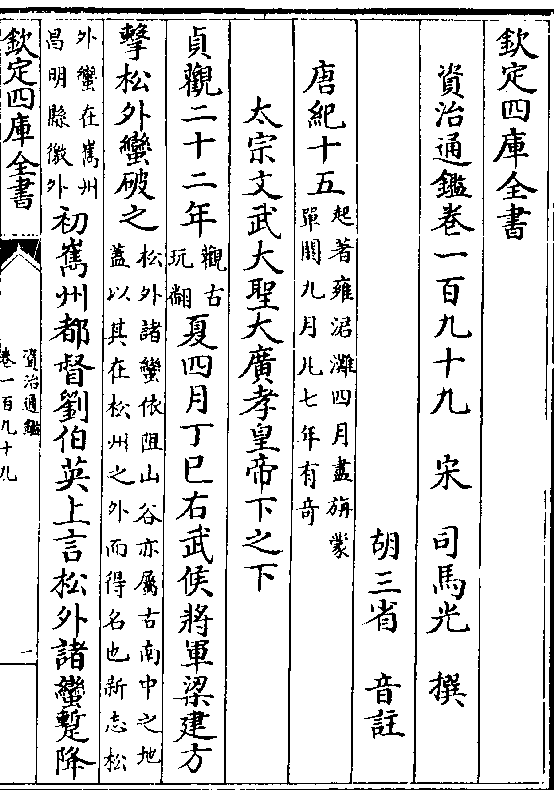 欽定四庫全書
資治通鑑卷一百九十九
宋 司馬光 撰
胡三省 音註
唐紀十五
起著雍涒灘四月盡旃蒙
單閼九月凡七年有奇
太宗文武大聖大廣孝皇帝下之下
貞觀二十二年
觀古
玩翻
夏四月丁巳右武候將軍梁建方
擊松外蠻破之
松外諸蠻依阻山谷亦屬古南中之地
蓋以其在松州之外而得名也新志松
外蠻在嶲州
昌明縣徼外
初嶲州都督劉伯英上言松外諸蠻蹔降
欽定四庫全書
資治通鑑
卷一百九十九
一